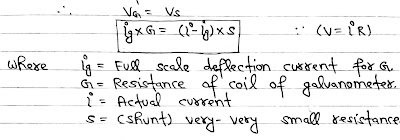 ∴ VG = Vs
ig × G = (i - ig) × S ∵ (V = iR)
where ig = Full scale deflection current for G.
G = Resistance of coil of galvanometer.
i = Actual current
S = (shunt) very-very small resistance